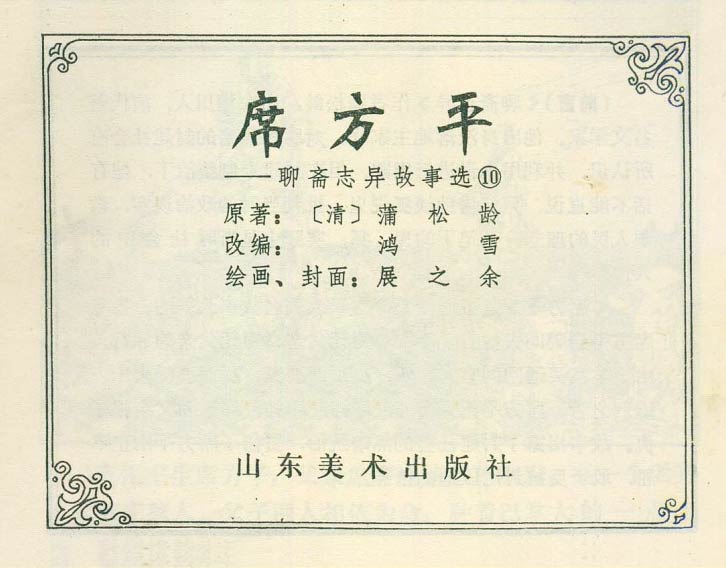 席方平
—聊斋志异故事选⑩
原著：〔清〕蒲松龄
改编：鸿雪
绘画、封面：展之余
山东美术出版社